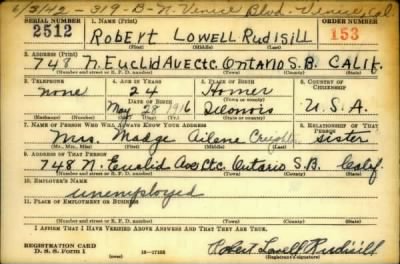 6/3/42 - 319-B-N. Venice Blvd. Venice, Cal.
SERIAL NUMBER 1. NAME (Print) ORDER NUMBER
2512 ROBERT LOWELL RUDISILL 153
(First) (Middle) (Last)
2. ADDRESS (Print)
748 N. EUCLID AVE CTC. ONTARIO S.B. CALIF.
(Number and street or R. F. D. number) (Town) (County) (State)
3. TELEPHONE 4. AGE IN YEARS 5. PLACE OF BIRTH 6. COUNTRY OF CITIZENSHIP
none 24 Homer
DATE OF BIRTH
May 28 1916 Illinois U.S.A.
(Mo.) (Day) (Yr.) (State or country)
7. NAME OF PERSON WHO WILL ALWAYS KNOW YOUR ADDRESS 8. RELATIONSHIP OF THAT PERSON
Mrs. Madge Ailene sister
(Mr., Mrs., Miss) (First) (Middle) (Last)
9. ADDRESS OF THAT PERSON
748 N. Euclid Ave Ctc. Ontario S.B. Calif.
(Number and street or R. F. D. number) (Town) (County) (State)
10. EMPLOYER'S NAME
unemployed
11. PLACE OF EMPLOYMENT OR BUSINESS
(Number and street or R. F. D. number) (Town) (County) (State)
I AFFIRM THAT I HAVE VERIFIED ABOVE ANSWERS AND THAT THEY ARE TRUE.
REGISTRATION CARD
D. S. S. Form 1 16-17105 Robert Lowell Rudisill
(Registrant's signature)